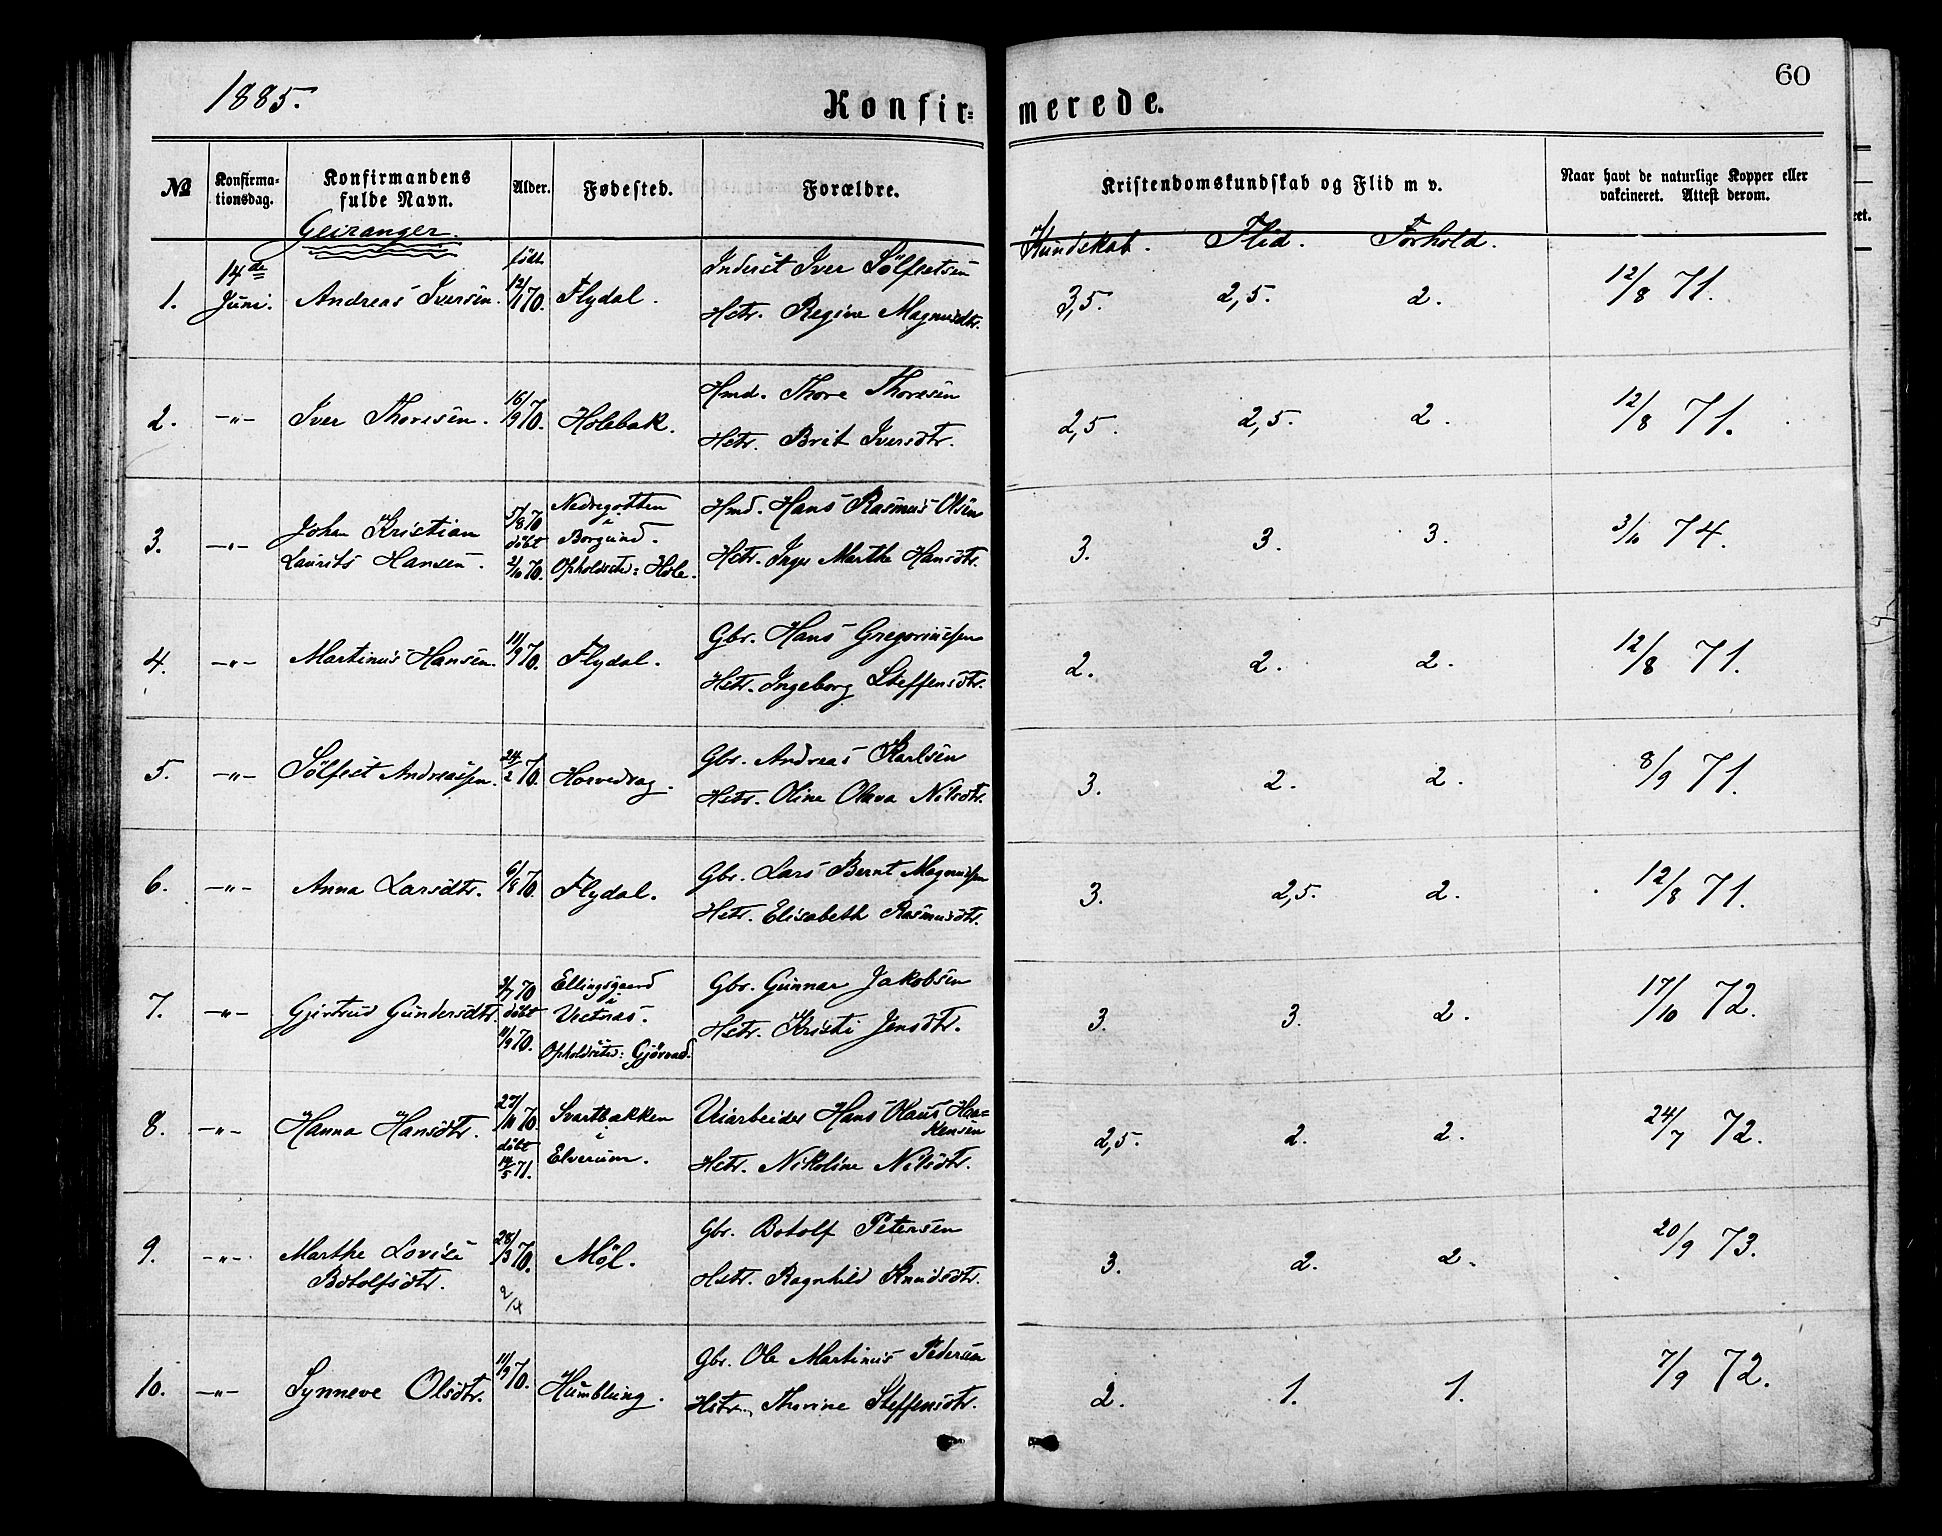 1885.
60
Konfir=
merede.
№
Konfirma-
tionsdag.
Konfirmandens
fulde Navn.
Alder.
Fødested.
Forældre.
Kristendomskundskab og Flid m v.
Naar havt de naturlige Kopper eller
vakcineret. Attest derom.
Geiranger.
Kundskab. Flid. Forhold.
1. 14de Juni. Andreas Iversen. født 12/11 70. Flydal. Inderst Iver Sölfestsen
Hstr. Regine Magnusdtr. 3,5. 2,5. 2. 12/8 71.
2. -"- Iver Thoresen. 16/9 70. Holebak. Hmd. Thore Thoresen
Hstr. Brit Iversdtr. 2,5. 2,5. 2. 12/8 71.
3. -"- Johan Kristian
Laurits Hansen. 5/8 70 döbt 2/10 70. Nedregotten
i
Borgund.
Opholdssted: Hole. Hmd. Hans Rasmus Olsen
Hstr. Inger Marthe Hansdtr. 3. 3. 3. 3/10 74.
4. -"- Martinus Hansen. 11/9 70. Flydal. Gbr. Hans Gregoriussen
Hstr. Ingeborg Steffensdtr. 2. 2. 2. 12/8 71.
5. -"- Sölfest Andreassen. 24/2 70. Horvedrag. Gbr. Andreas Karlsen
Hstr. Oline Olava Nilsdtr. 3. 2. 2. 8/9 71.
6. -"- Anna Larsdtr. 6/8 70. Flydal. Gbr. Lars Bernt Magnussen
Hstr. Elisabeth Rasmusdtr. 3. 2,5. 2. 12/8 71.
7. -"- Gjertrud Gundersdtr. 3/7 70 döbt 11/9 70. Ellingsgaard
i
Vestnes.
Opholdssted: Gjörvad. Gbr. Gunnar Jakobsen
Hstr. Kristi Jensdtr. 3. 3. 2. 17/10 72.
8. -"- Hanna Hansdtr. 27/11 70. döbt 14/5 71. Svartbakken
i
Elverum. Veiarbeider Hans Olaus Haa=
kensen
Hstr. Nikoline Nilsdtr. 2,5. 2. 2. 24/7 72.
9. -"- Marthe Lovise
Botolfsdtr. 28/3 70. 2/4 Möl. Gbr. Botolf Petersen
Hstr. Ragnhild Knudsdtr. 3. 2. 2. 20/9 73.
10. -"- Synneve Olsdtr. 11/9 70. Humblung. Gbr. Ole Martinus Pedersen
Hstr. Thorine Steffensdtr. 2. 1. 1. 7/9 72.